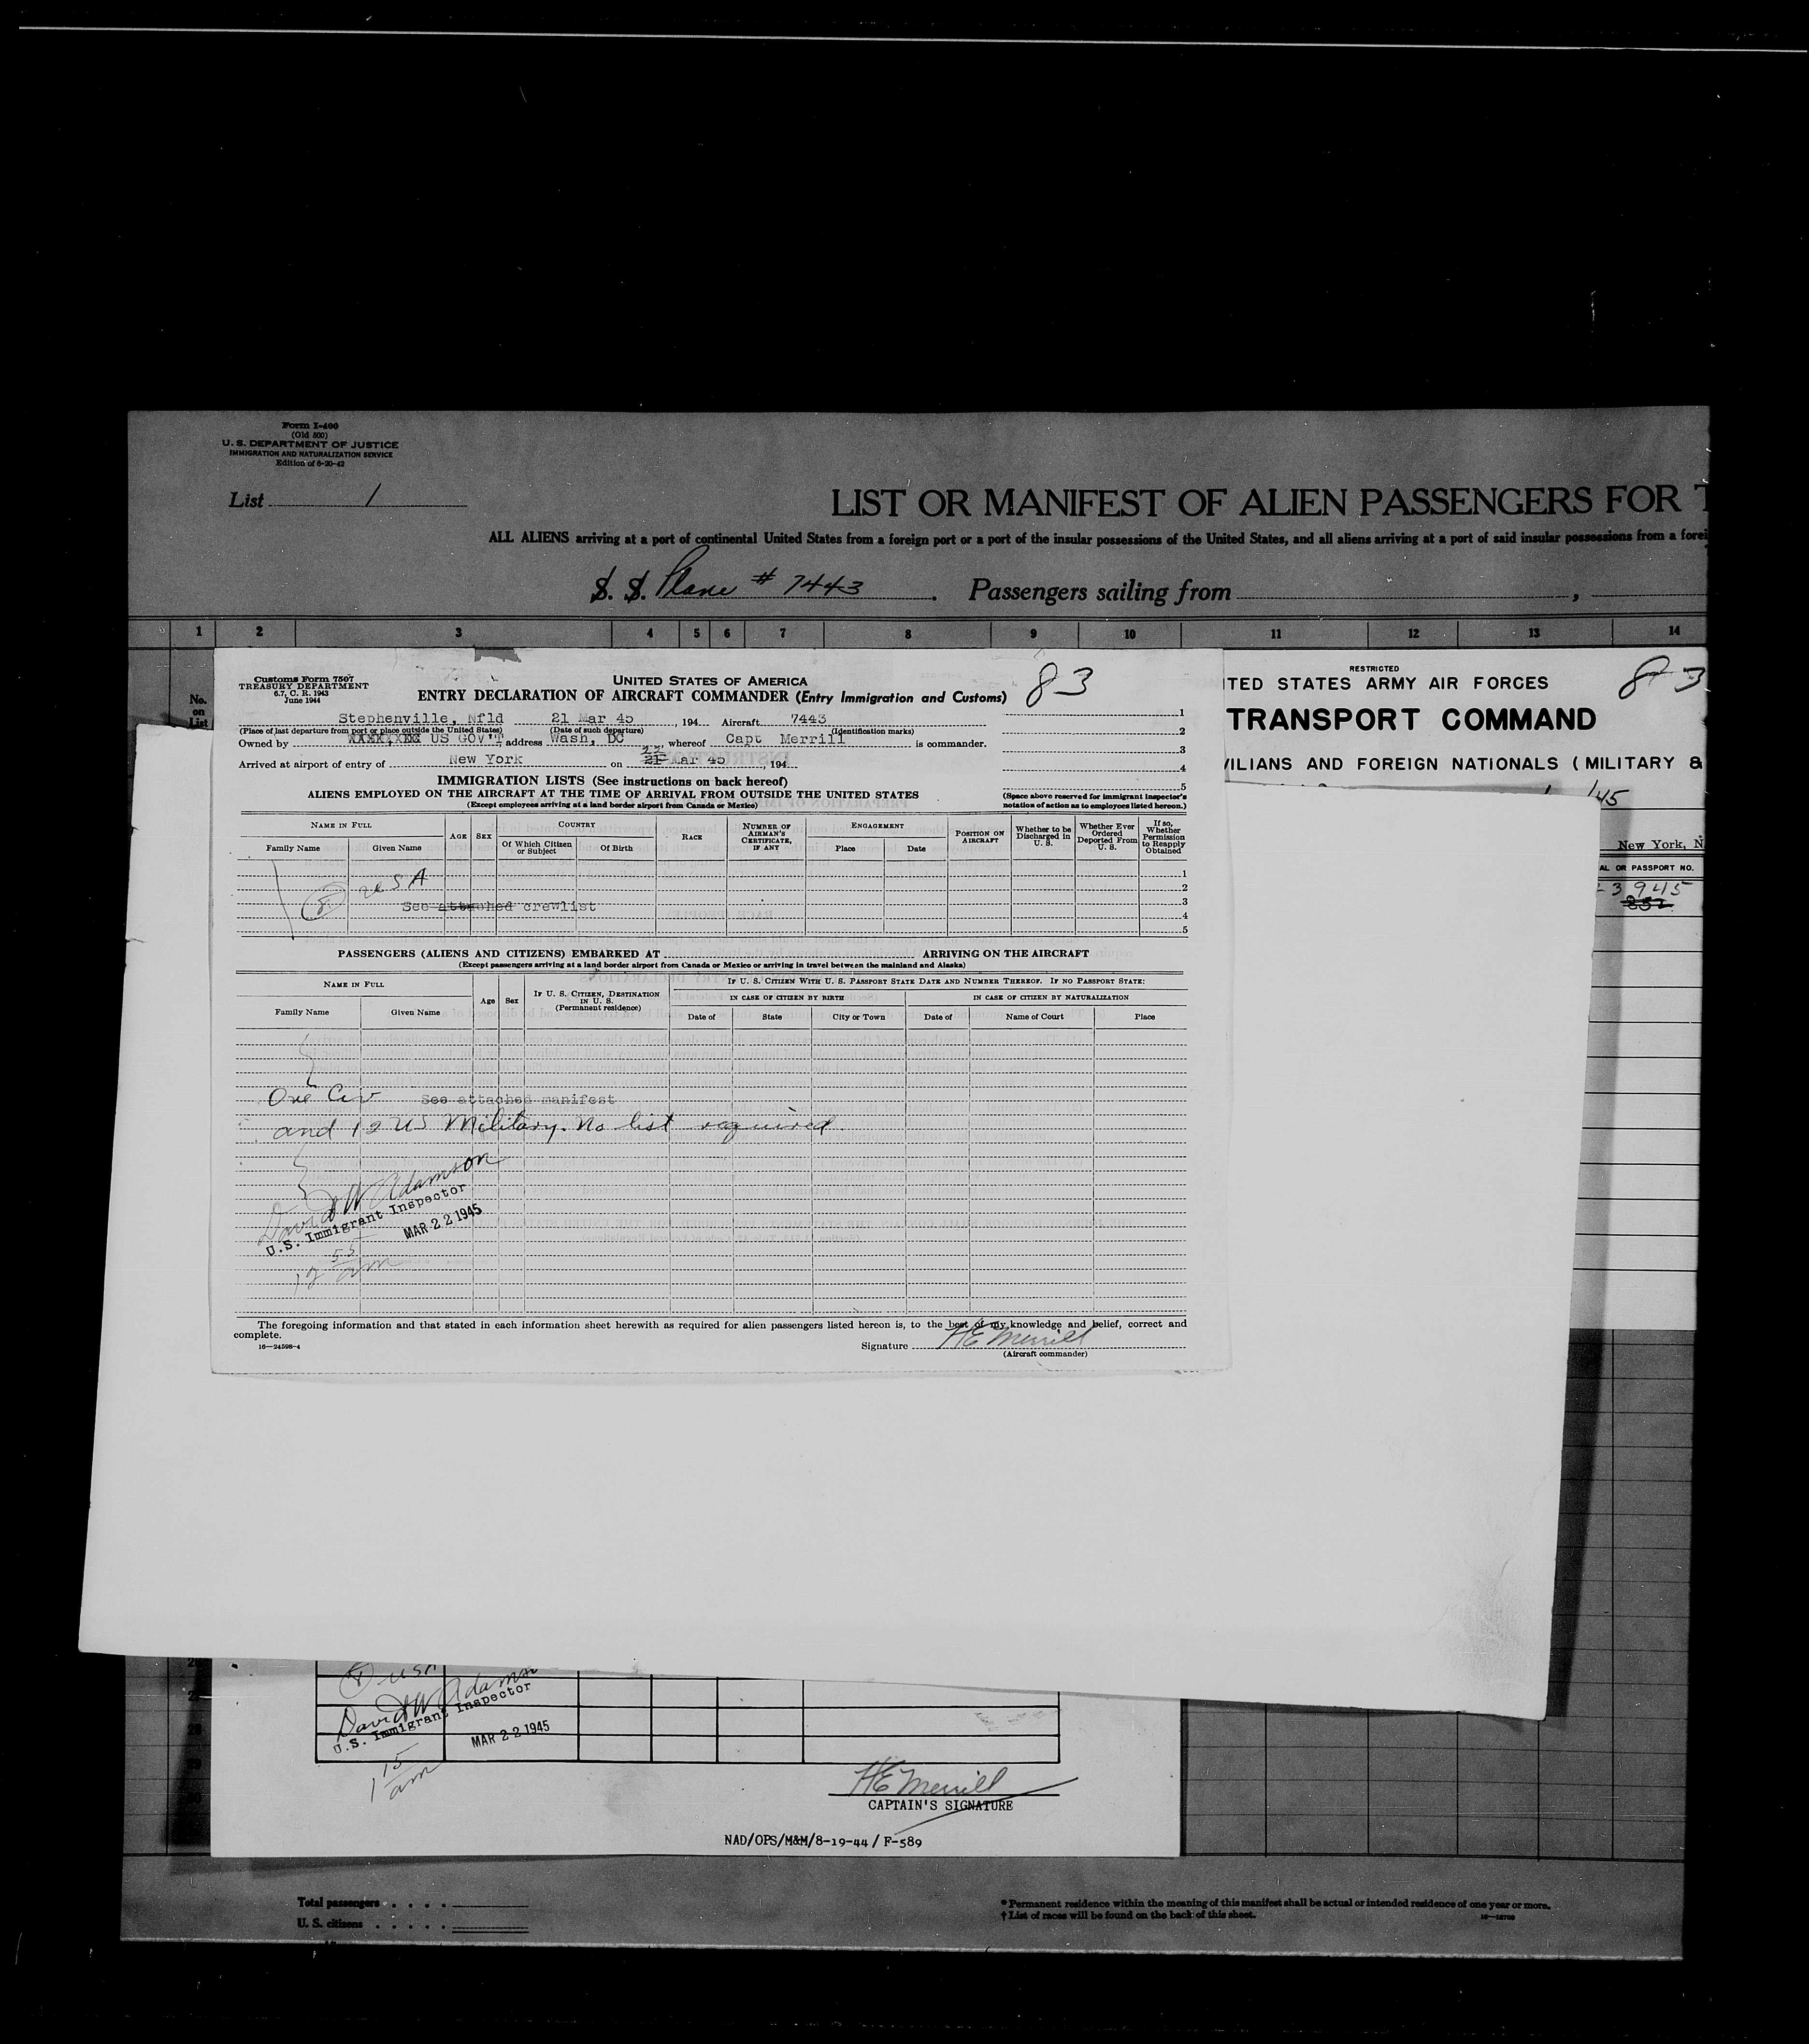 Form I-400
(Old 500)
U. S. DEPARTMENT OF JUSTICE
IMMIGRATION AND NATURALIZATION SERVICE
Edition of 6-20-42
List 1
LIST OR MANIFEST OF ALIEN PASSENGERS FOR T
ALL ALIENS arriving at a port of continental United States from a foreign port or a port of the insular possessions of the United States, and all aliens arriving at a port of said insular possessions from a forei
S. S. Plane # 7443. Passengers sailing from ,
1 2 3 4 5 6 7 8 9 10 11 12 13 14
No.
on
List
Customs Form 7507
TREASURY DEPARTMENT
6.7, C. R. 1943
June 1944
UNITED STATES OF AMERICA
ENTRY DECLARATION OF AIRCRAFT COMMANDER (Entry Immigration and Customs)
83
Stephenville, Nfld 21 Mar 45, 194 Aircraft 7443
(Place of last departure from port or place outside the United States) (Date of such departure) (Identification marks)
Owned by US GOV'T address Wash, DC whereof Capt Merrill is commander.
Arrived at airport of entry of New York on 21 22 Mar 45, 194
1
2
3
4
5
(Space above reserved for immigrant inspector's
notation of action as to employees listed hereon.)
IMMIGRATION LISTS (See instructions on back hereof)
ALIENS EMPLOYED ON THE AIRCRAFT AT THE TIME OF ARRIVAL FROM OUTSIDE THE UNITED STATES
(Except employees arriving at a land border airport from Canada or Mexico)
NAME IN FULL
Family Name Given Name
AGE SEX
COUNTRY
Of Which Citizen or Subject Of Birth
RACE
NUMBER OF AIRMAN'S CERTIFICATE, IF ANY
ENGAGEMENT
Place Date
POSITION ON AIRCRAFT
Whether to be Discharged in U. S.
Whether Ever Ordered Deported From U. S.
If so, Whether Permission to Reapply Obtained
1
2
3
4
5
USA
See attached crewlist
PASSENGERS (ALIENS AND CITIZENS) EMBARKED AT ARRIVING ON THE AIRCRAFT
(Except passengers arriving at a land border airport from Canada or Mexico or arriving in travel between the mainland and Alaska)
NAME IN FULL
Family Name Given Name
Age Sex
IF U. S. CITIZEN, DESTINATION IN U. S.
(Permanent residence)
IF U. S. CITIZEN WITH U. S. PASSPORT STATE DATE AND NUMBER THEREOF. IF NO PASSPORT STATE:
IN CASE OF CITIZEN BY BIRTH IN CASE OF CITIZEN BY NATURALIZATION
Date of State City or Town Date of Name of Court Place
One Civ See attached manifest
and 12 US Military. No list required.
David W Adamson
U.S. Immigrant Inspector
MAR 22 1945
12 55 am
The foregoing information and that stated in each information sheet herewith as required for alien passengers listed hereon is, to the best of my knowledge and belief, correct and
complete.
16—24598-4
Signature H E Merrill
(Aircraft commander)
RESTRICTED
83
ITED STATES ARMY AIR FORCES
TRANSPORT COMMAND
VILIANS AND FOREIGN NATIONALS ( MILITARY &
/45
New York, N
AL OR PASSPORT NO.
3945
852
USA
David W Adamso
U.S. Immigrant Inspector
MAR 22 1945
1 15 am
H E Merrill
CAPTAIN'S SIGNATURE
NAD/OPS/M&M/8-19-44 / F-589
Total passengers
U. S. citizens
* Permanent residence within the meaning of this manifest shall be actual or intended residence of one year or more.
† List of races will be found on the back of this sheet.